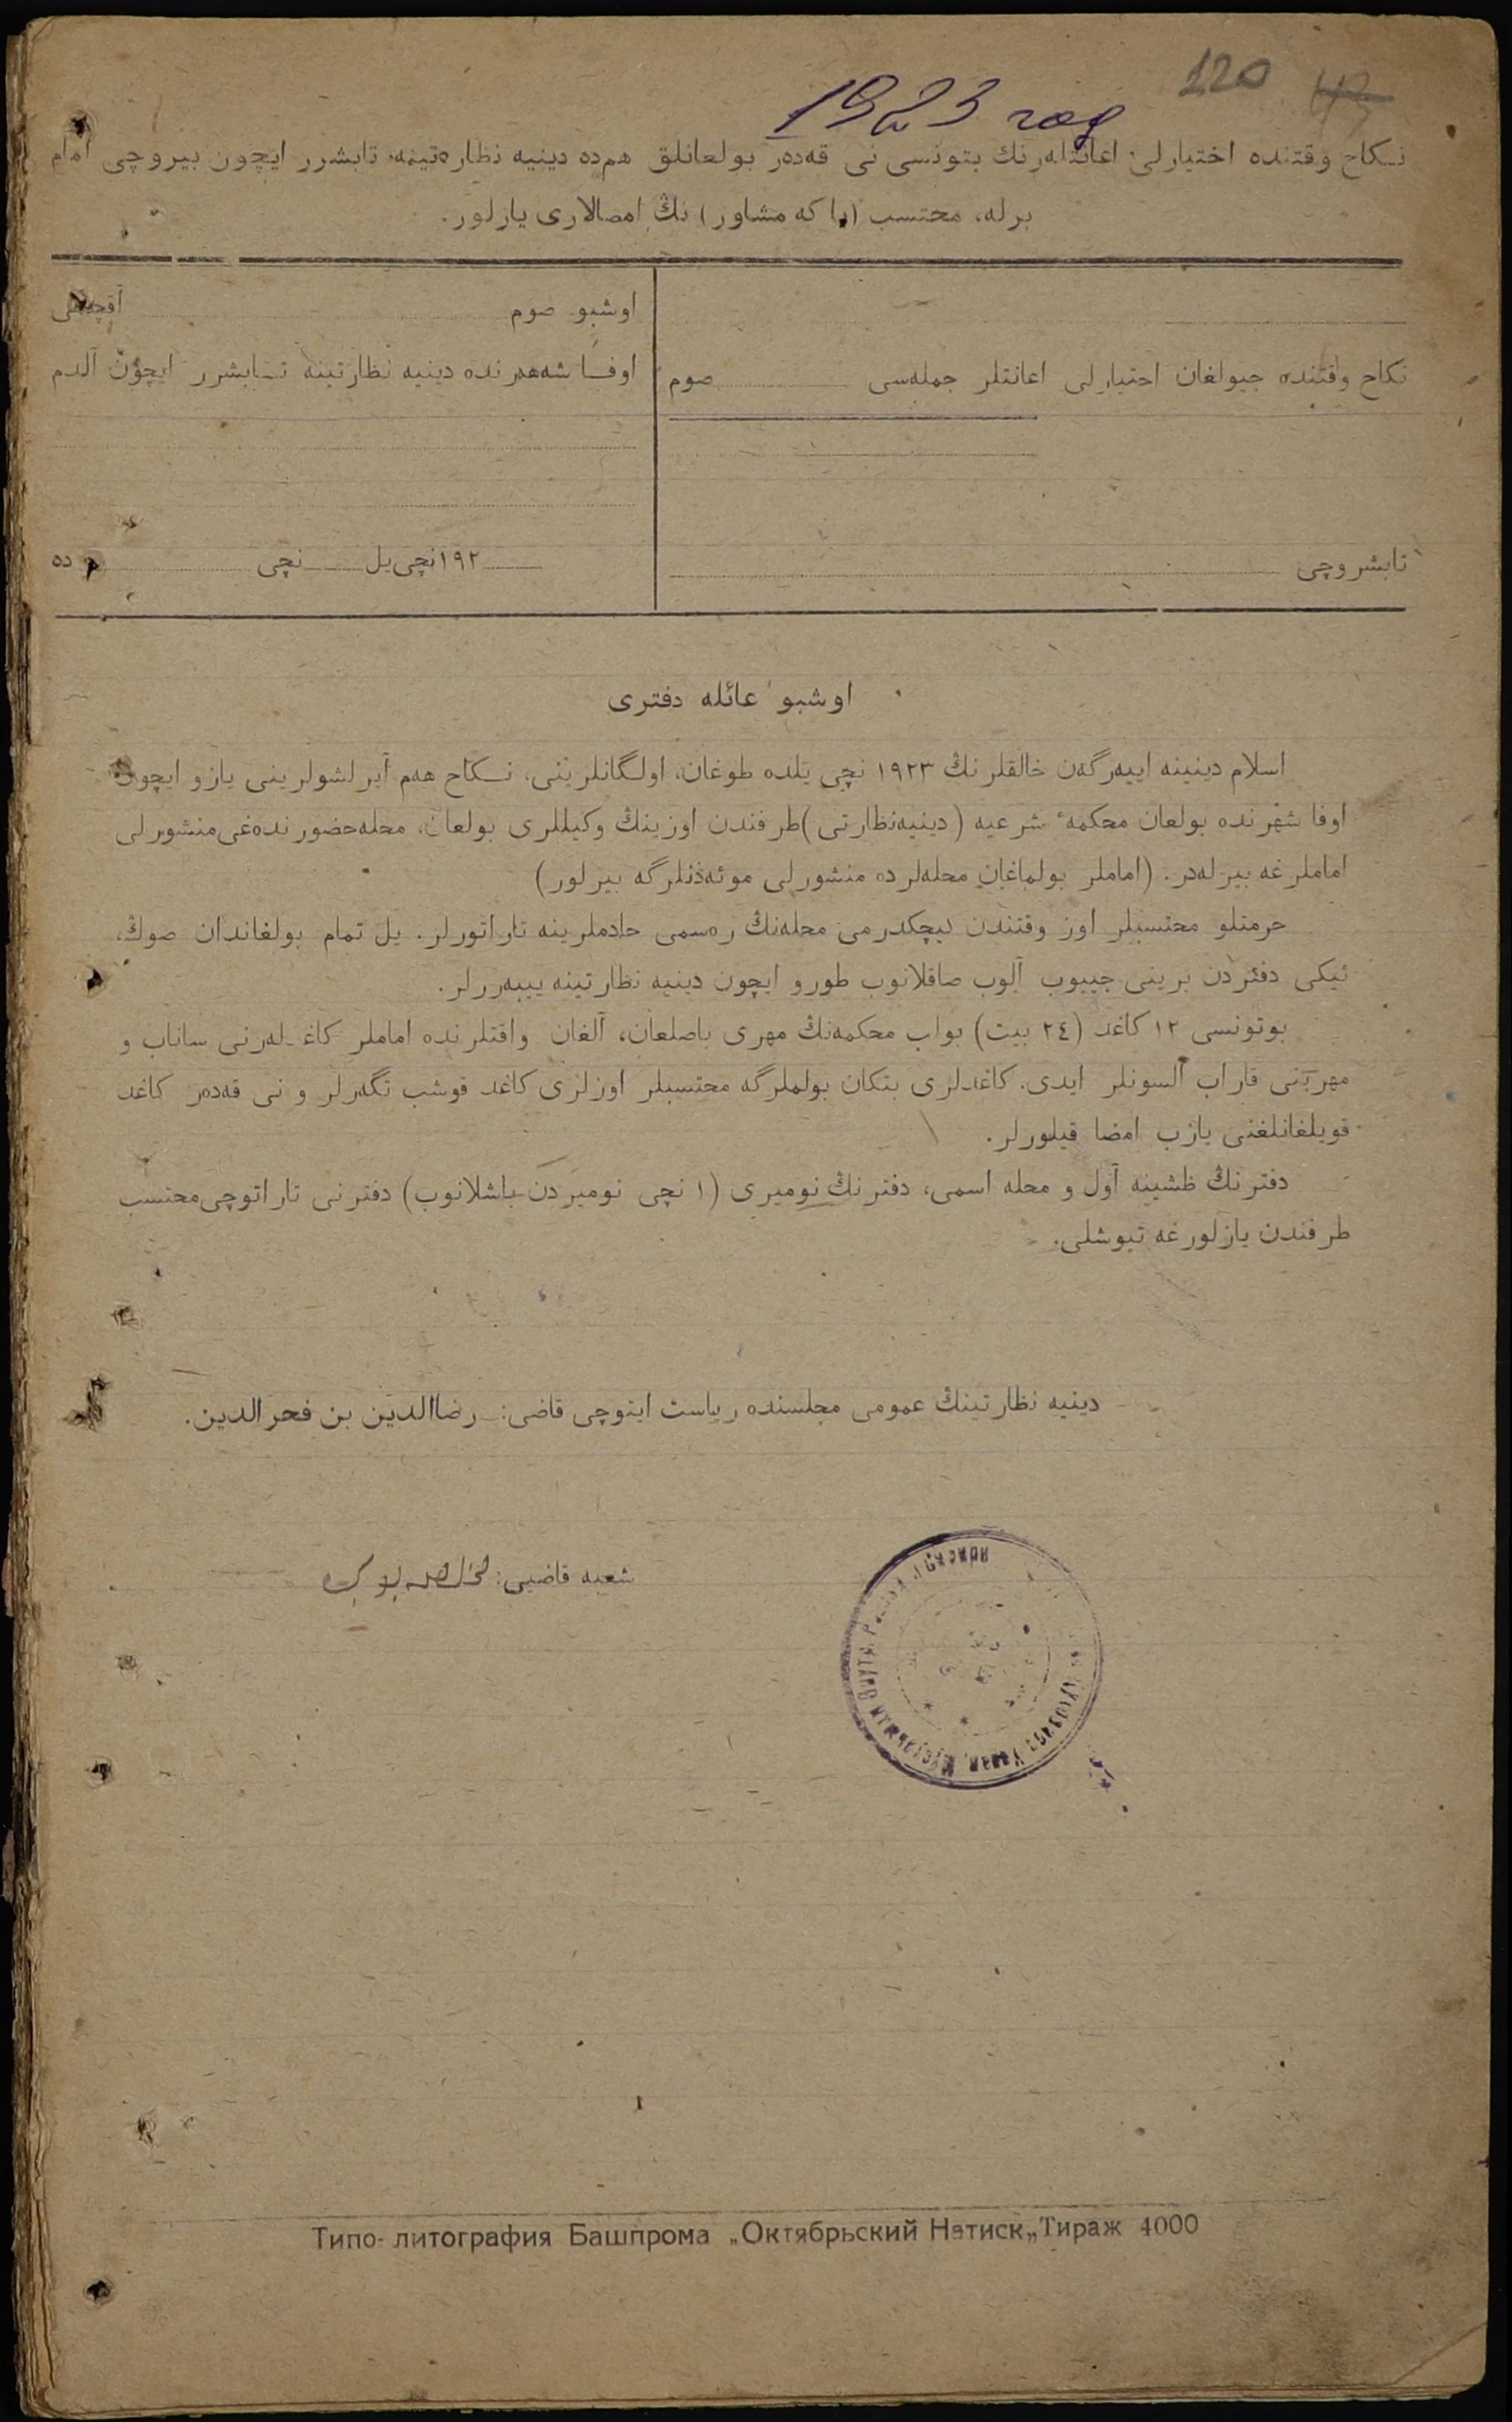 120
1923 год
نكاح وقتنده اختيارلی اعانتلەرنك بتونسی نی قەدەر بولعانلق هم‌ده دينيه نظارەتينه تابشرر ايچون بيروچی امام
برله، محتسب (يا كه مشاور) نڭ امصالاری يازلور.
اوشبو صوم آقچەنی
نكاح وقتنده جيولغان اختيارلی اعانتلر جمله‌سی صوم
اوفا شەهرنده دينيه نظارتينه تابشرر ايچون آلدم
تابشروچی
١٩٢ نچی يل نچی ده
اوشبو عائله دفتری
اسلام دينينه اييەرگەن خالقلرنڭ ١٩٢٣ نچی يلده طوغان، اولگانلرينی، نكاح هەم آيرلشولرينی يازو ايچون
اوفا شهرنده بولعان محكمهٔ شرعيه (دينيه‌نظارتی) طرفندن اوزينڭ وكيللری بولعان، محله‌حضورنده‌غی‌منشورلی
اماملرغه بيرله‌در. (اماملر بولماغان محله‌لرده منشورلی موئەذنلرگه بيرلور)
حرمتلو محتسبلر اوز وقتندن كيچكدرمی محله‌نڭ رەسمی خادملرينه تاراتورلر. يل تمام بولغاندان صوڭ،
ئيكی دفتردن برينی جييوب آلوب صاقلانوب طورو ايچون دينيه نظارتينه يیبەررلر.
بوتونسی ١٢ كاغد (٢٤ بيت) بولب محكمه‌نڭ مهری باصلعان، آلغان واقتلرنده اماملر كاغدلەرنی ساناب و
مهرينی قاراب آلسونلر ايدی. كاغدلری بتكان بولملرگه محتسبلر اوزلری كاغد قوشب تگەرلر و نی قەدەر كاغد
قويلغانلغنی يازب امضا قيلورلر.
دفترنڭ طشينه آول و محله اسمی، دفترنڭ نوميری (١ نچی نوميردن باشلانوب) دفترنی تاراتوچی‌محتسب
طرفندن يازلورغه تيوشلی.
دينيه نظارتينڭ عمومی مجلسنده رياست ايتوچی قاضی: رضاالدين بن فخرالدين.
شعبه قاضيی:
Типо-литография Башпрома „Октябрьский Натиск„ Тираж 4000